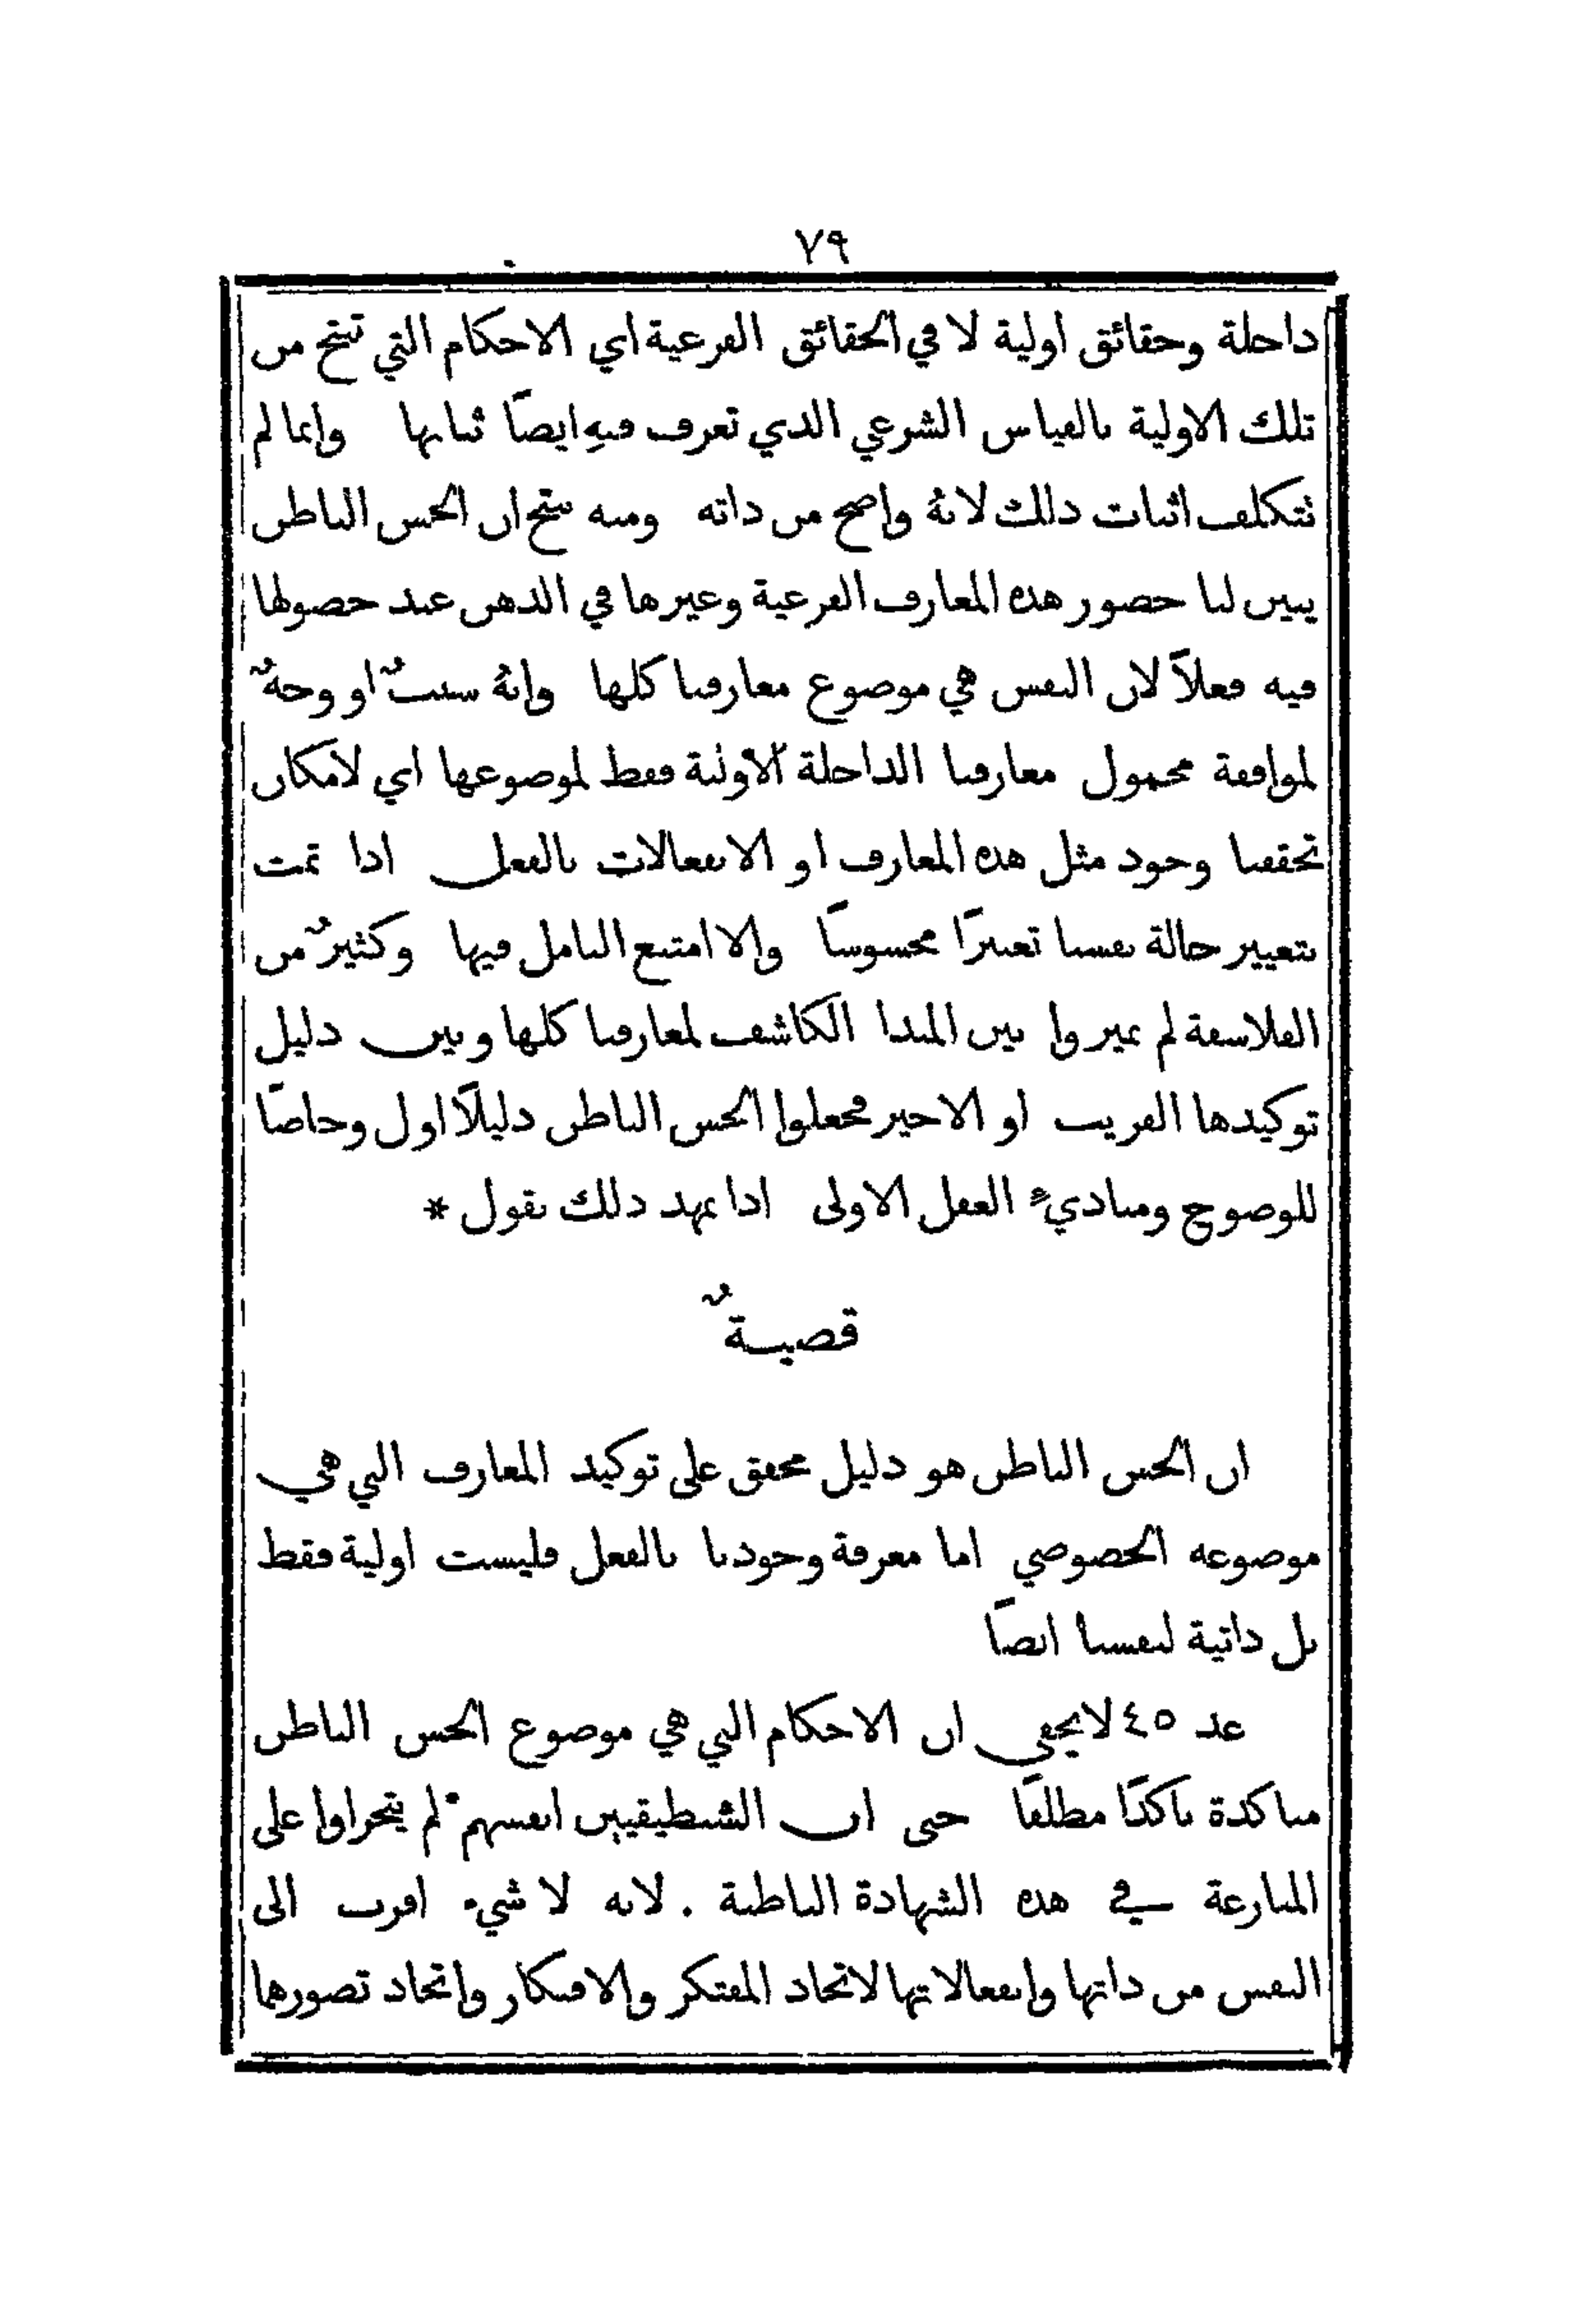 ٧٩
داخلة وحقائق اولية لا في الحقائق الفرعية اي الاحكام التي تنتج من
تلك الاولية بالقياس الشرعي الذي تعرف فيهِ ايضًا ثباتها وانما لم
نتكلف اثبات ذلك لانهُ واضح من ذاته ومنه ينتج ان الحس الباطن
يبين لنا حضور هذه المعارف الفرعية وغيرها في الذهن عند حصولها
فيه فعلاً لان النفس هي موضوع معارفنا كلها وانهُ سببٌ او وجهٌ
لموافقة محمول معارفنا الداخلة الاولية فقط لموضوعها اي لامكان
تحققنا وجود مثل هذه المعارف او الانفعالات بالفعل اذا تمت
بتغيير حالة نفسنا تغييرًا محسوسًا والا امتنع التامل فيها وكثيرٌ من
الفلاسفة لم يميزوا بين المبدا الكاشف لمعارفنا كلها وبين دليل
توكيدها القريب او الاخير فجعلوا الحس الباطن دليلاً اول وخاصًا
للوضوح ومبادئ العقل الاولى اذا تمهد ذلك نقول *
قضيةٌ
ان الحس الباطن هو دليل محقق على توكيد المعارف التي هي
موضوعه الخصوصي اما معرفة وجودنا بالفعل فليست اولية فقط
بل ذاتية لنفسنا ايضًا
عد ٤٥ لا يخفى ان الاحكام التي هي موضوع الحس الباطن
متاكدة تاكدًا مطلقًا حتى ان الشبطيقيين انفسهم لم يتجراوا على
المنازعة في هذه الشهادة الباطنة . لانه لا شيء اقرب الى
النفس من ذاتها وانفعالاتها لاتحاد المفتكر والافتكار واتحاد تصورها